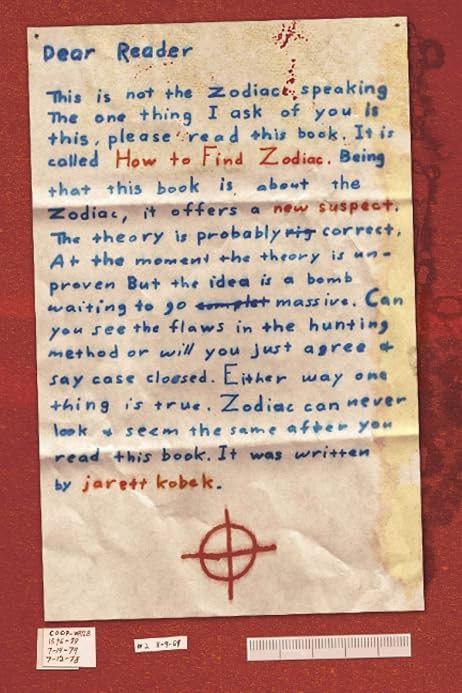 Dear Reader
This is not the Zodiac speaking
The one thing I ask of you is
this, please read this book. It is
called How to Find Zodiac. Being
that this book is, about the
Zodiac, it offers a new suspect.
The theory is probably rig correct.
At the moment the theory is un-
proven But the idea is a bomb
waiting to go complet massive. Can
you see the flaws in the hunting
method or will you just agree &
say case cloesed. Either way one
thing is true. Zodiac can never
look & seem the same after you
read this book. It was written
by jarett kobek.
1596-79
7-14-79
7-12-78
#2 8-9-69